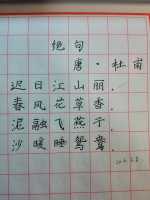 绝句
唐·杜甫
迟日江山丽，
春风花草香。
泥融飞燕子，
沙暖睡鸳鸯。